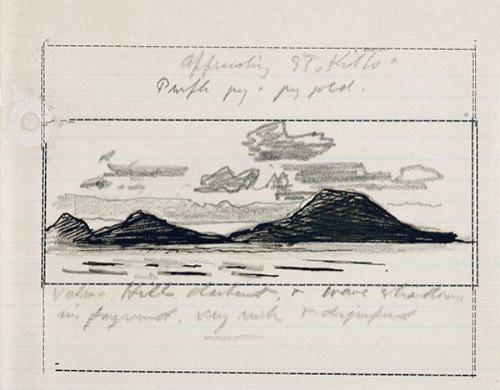 Approaching ST. Kitts
Purple grey & grey gold.
Hills darkest, & wave shadows
in foreground. Very rich & dignified